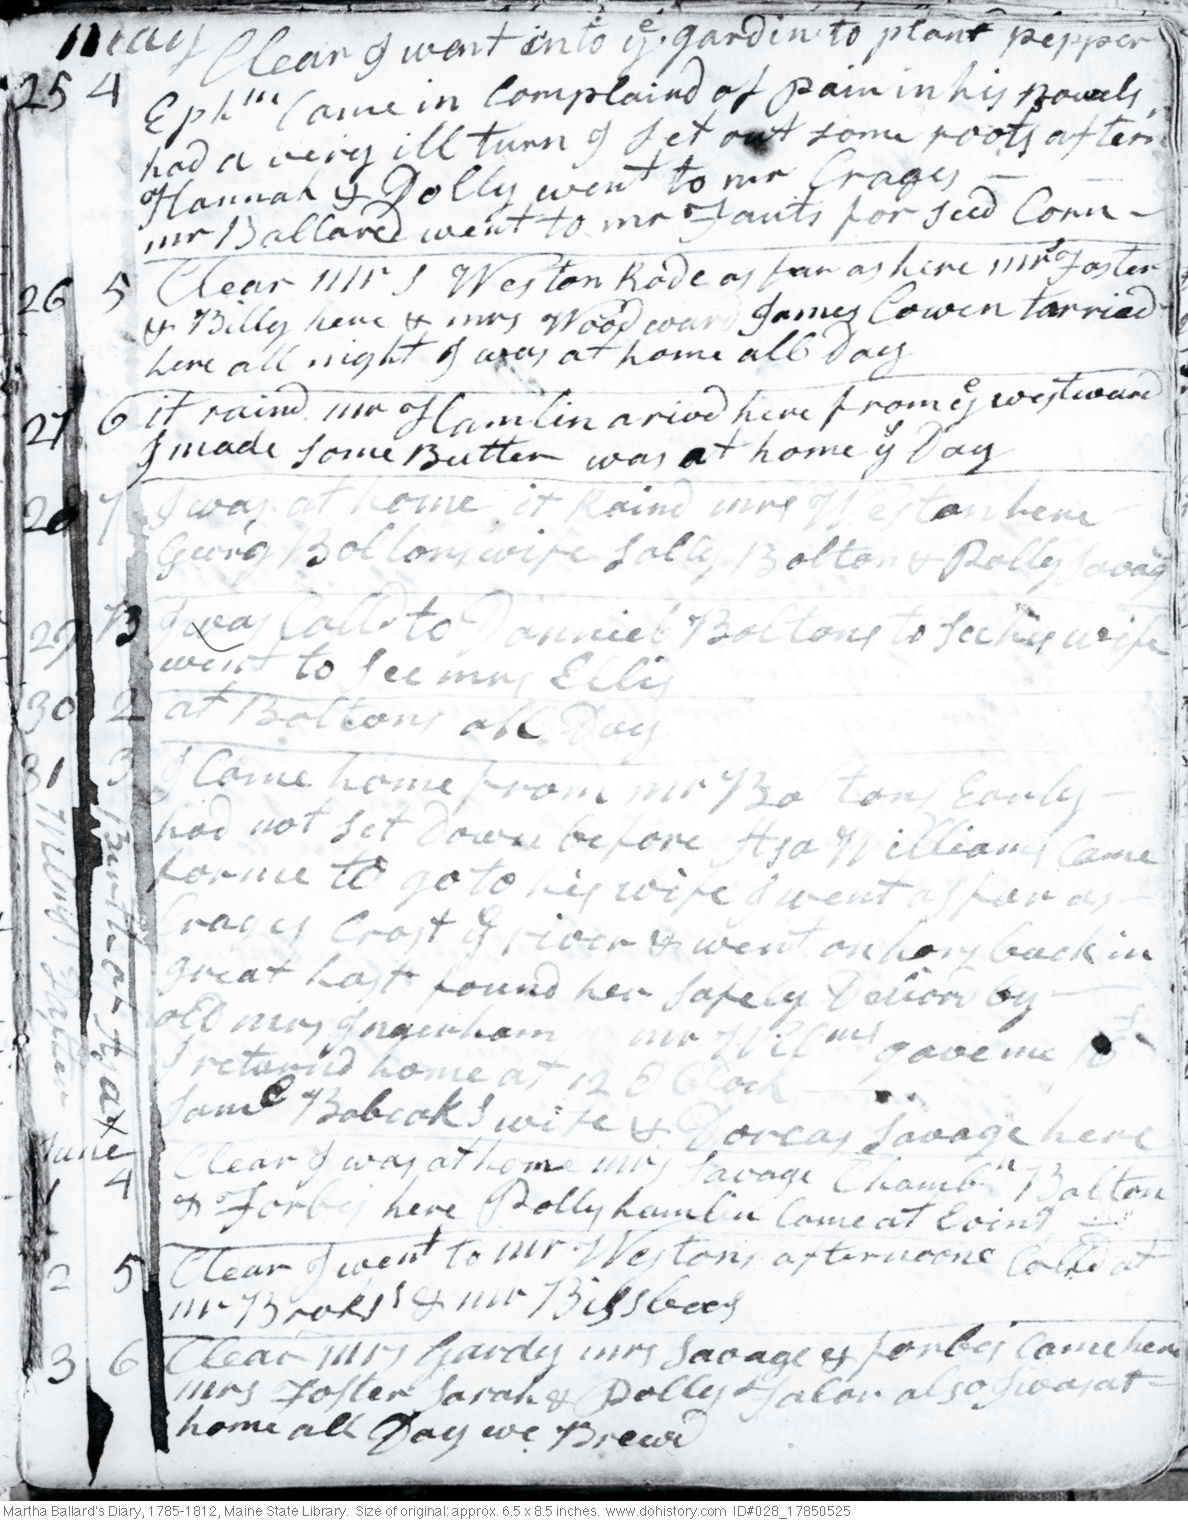 May Clear I went into ye gardin to plant pepper
25 4 Ephm Came in Complaind of pain in his Bowels,
had a very ill turn I set out some roots aftern
Hannah & Dolly went to mr Crages —
mr Ballard went to mr Fauts for seed Corn -
26 5 Clear mr S Weston Rode as far as here mrs Foster
& Billy here & mrs Woodward James Cowen tarried
here all night I was at home all Day
27 6 it raind mr Hamlin arivd here from ye westward
I made some Butter was at home ye Day
28 7 I was at home it Raind mrs Weston here
Georg Boltons wife Sally Bolton & Polly Savag
29 B I was Calld to Danniel Boltons to see his wife
went to see mrs Ellis
30 2 at Boltons all Day
31 3 I Came home from mr Boltons Early -
had not set Down before Asa Williams Came
for me to go to his wife I went as far as -
Crages Crost ye river & went on hors back in
great hast found her safely Deliord by -
old mrs Ingerham mr Willms gave me
I returnd home at 12 O Clock
Saml Babcoks wife & Dorcas Savage here
Birth at
June
1 4 Clear I was at home mrs Savage Chambn Bolton
& Forbis here Polly hamlin Came at Eving
2 5 Clear I went to mr Westons afternoone Calld at
mr Broks & mr
3 6 Clear mrs Gardy mrs Savage & forbis Came here
mrs Foster Sarah & Dolly also I was at -
home all Day we Brewd
Martha Ballard's Diary, 1785-1812, Maine State Library. Size of original: approx. 6.5 x 8.5 inches. www.dohistory.com ID#028_17850525